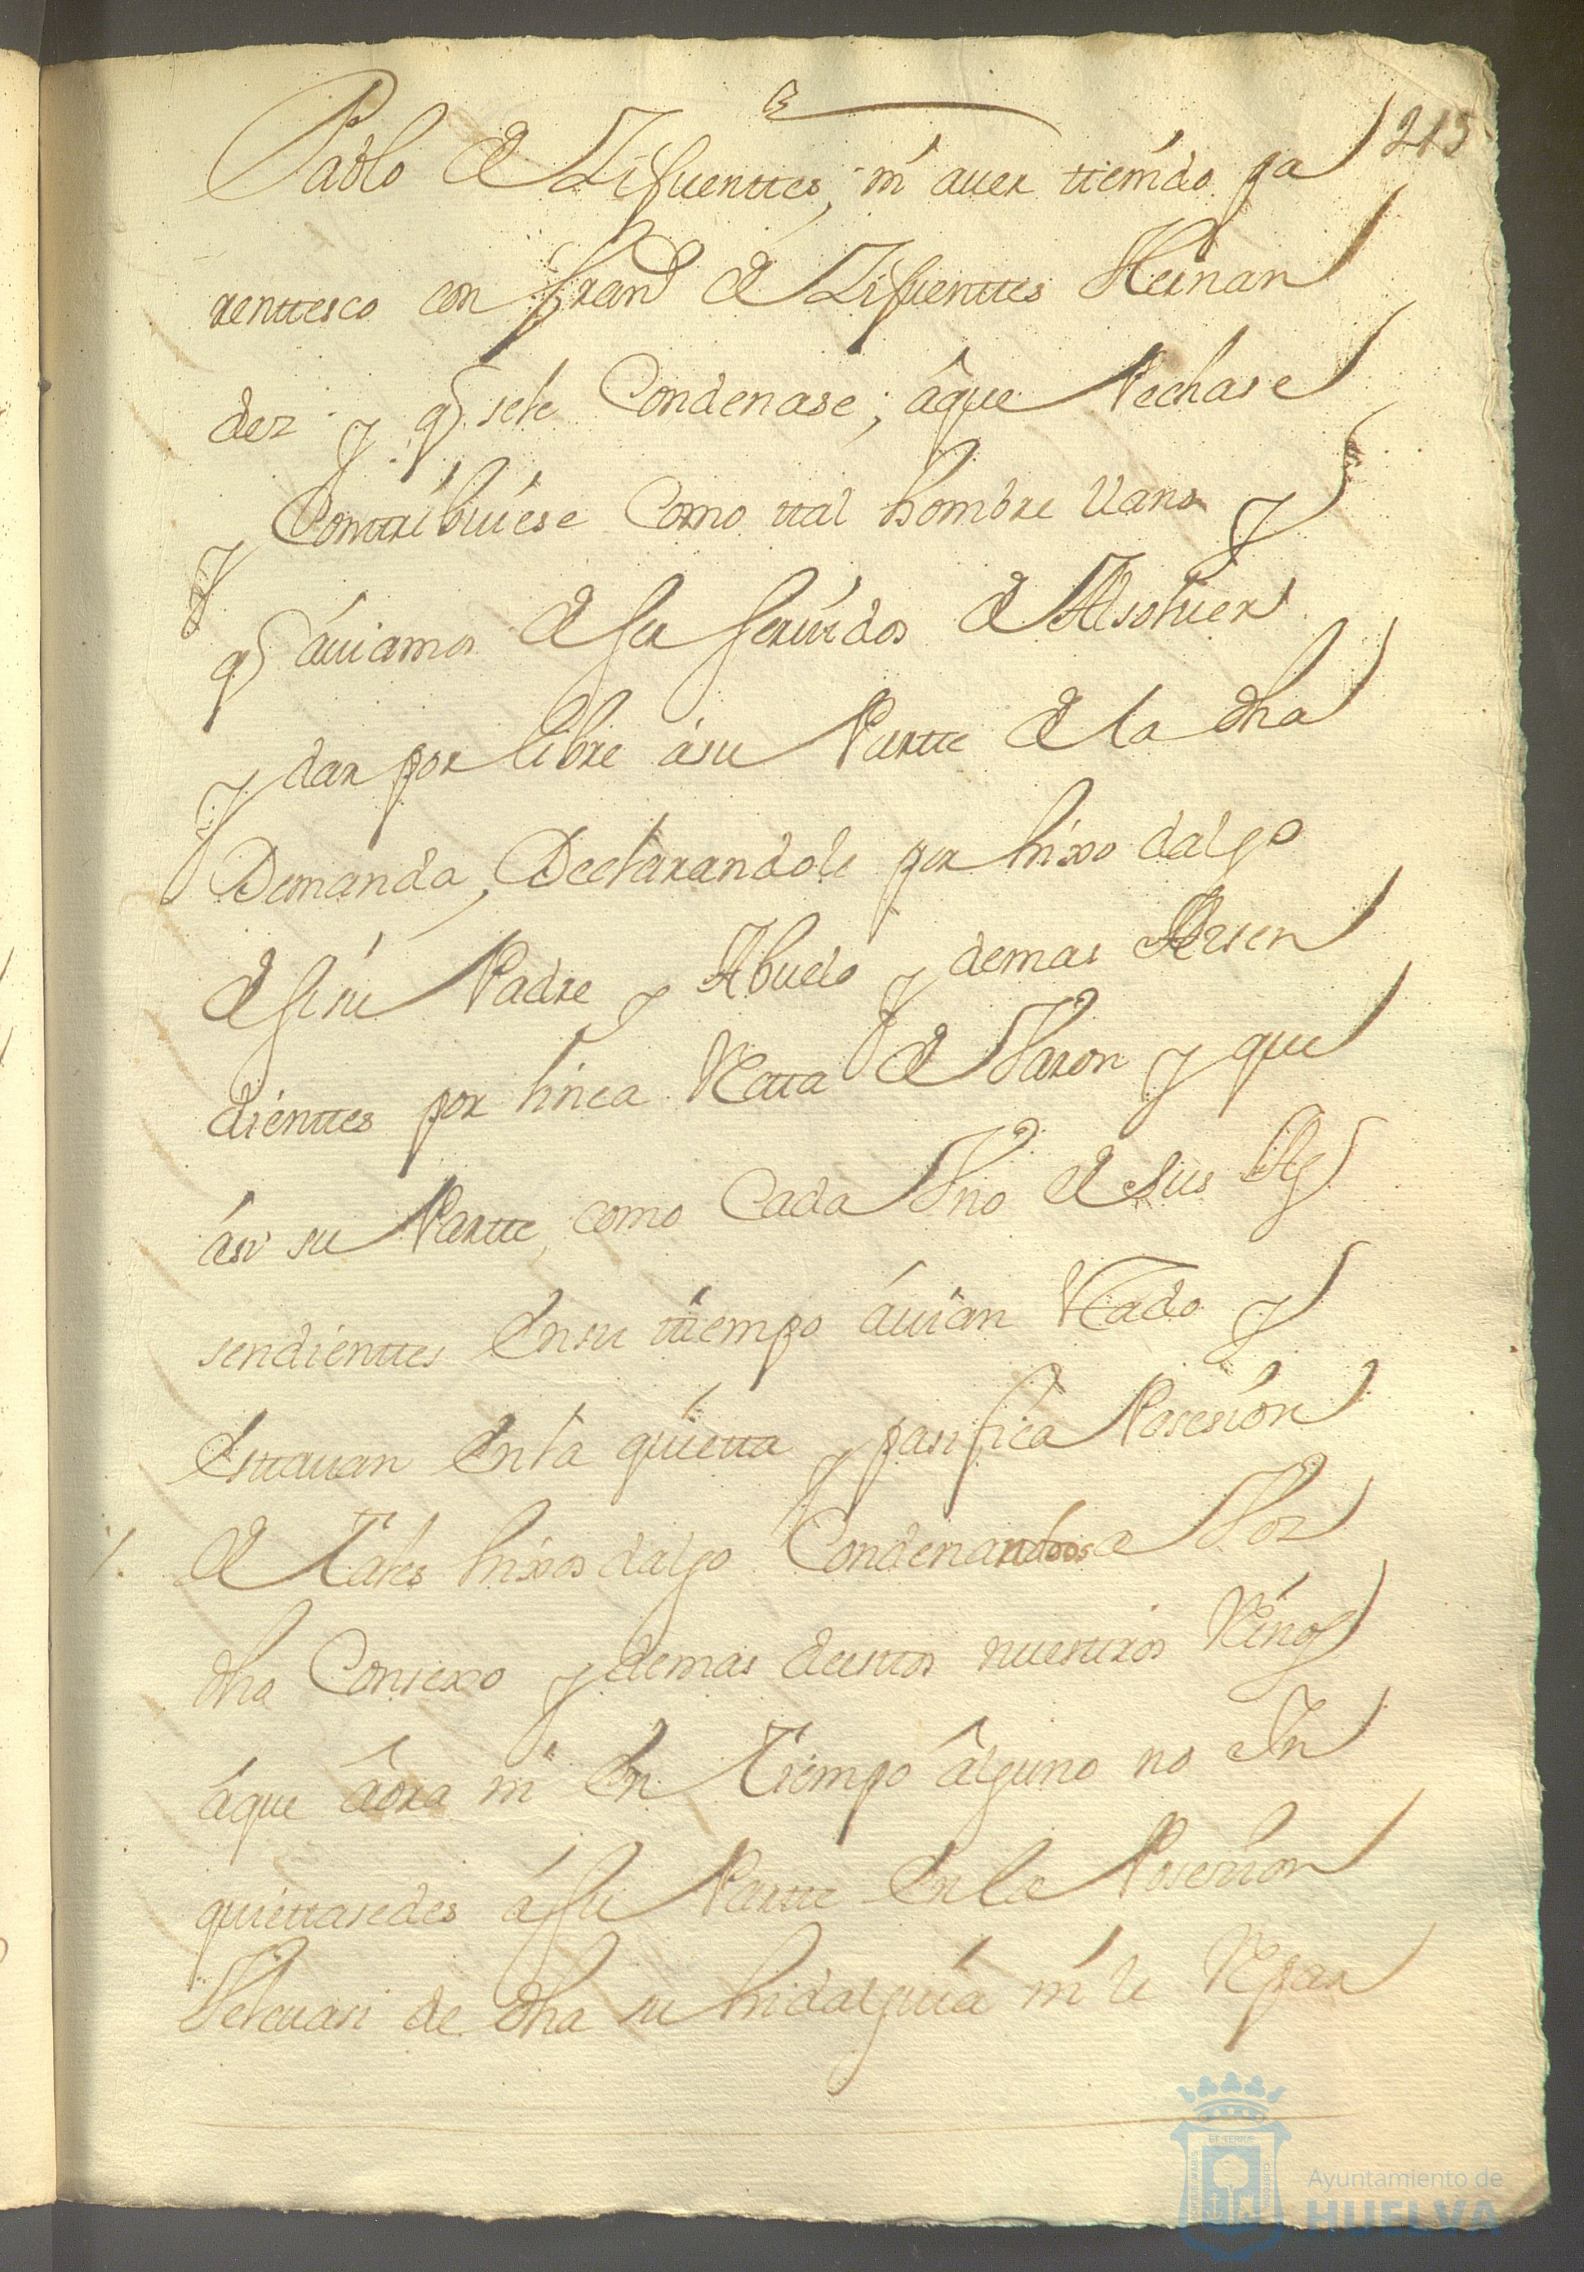 215
Pablo de Zifuenttes, ni auer ttenido pa
renttesco con fran.co de Zifuenttes Hernan
dez y q sele Condenase, áque Pechase
y Conttribuiése Como ttal hombre llano y
q áuiamos de ser seruidos de Absoluer
y dar por libre ásu Partte de la dha
Demanda, Declarandole por hixo dalgo
de si su Padre y Abuelo y demas Assen
dienttes por linea Rectta de Varon y que
ási su Partte, como Cada Vno de sus As
sendienttes En su tiempo áuian estado y
Esttauan En la quietta y pasifica Posesion
de Tales hixos dalgo Condenandoos a Vos
dho Consexo y demas destos nuestros Reinos
áque áora ni En Tiempo álguno no In
quiettasedes á su Partte En la Posesion
Velcuasi de dha su hidalguia ni le Repar
ET TERRAE
Ayuntamiento de
HUELVA